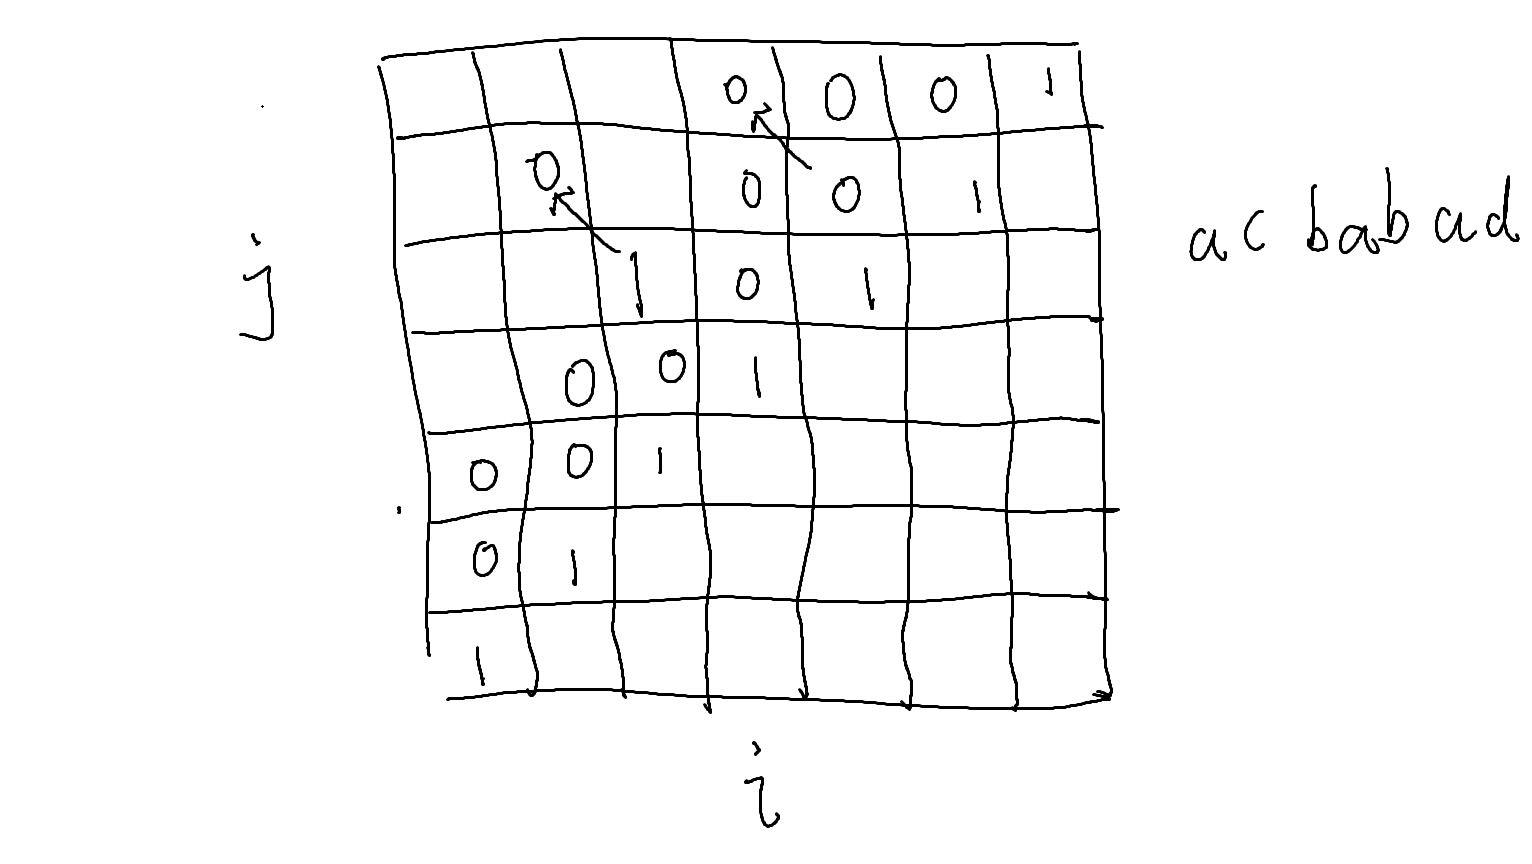 0 0 0 1
0 0 0 1
1 0 1
0 0 1
0 0 1
0 1
1
j
i
acbabad